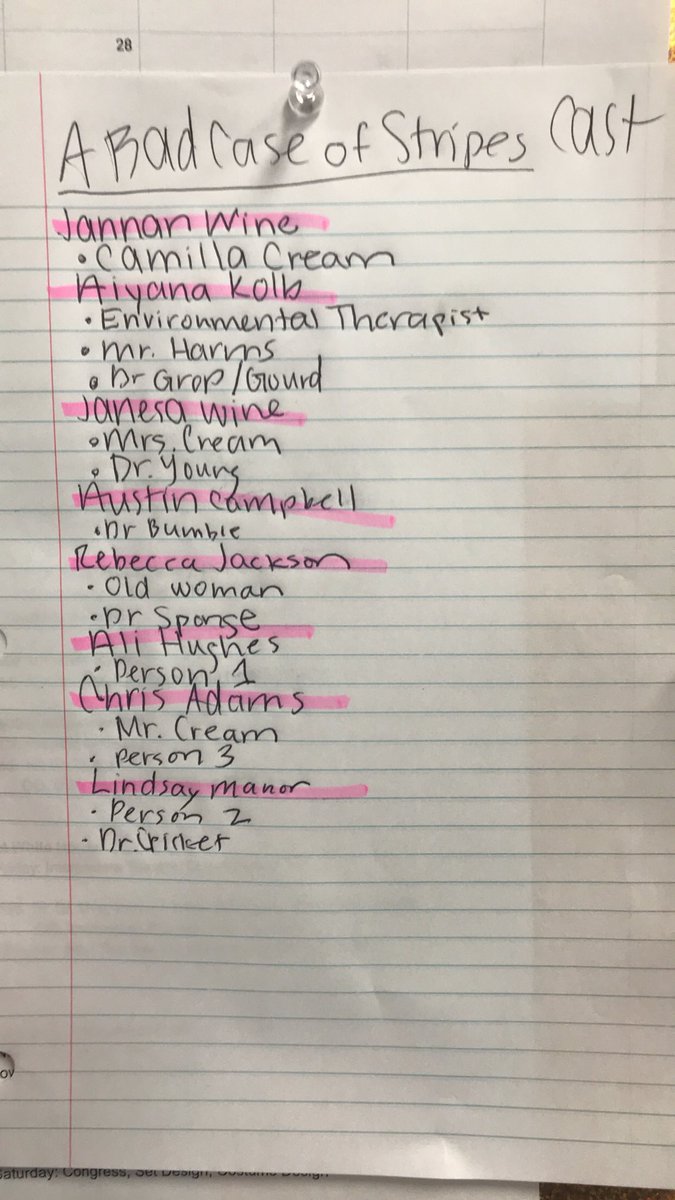 28
A Bad Case of Stripes Cast
Jannan Wine
• Camilla Cream
Aiyana Kolb
• Environmental Therapist
• Mr. Harms
• Dr Grop/Gourd
Janesa Wine
• Mrs. Cream
• Dr. Young
Austin Campbell
• Dr Bumble
Rebecca Jackson
• Old woman
• Dr Sponge
Ali Hughes
• Person 1
Chris Adams
• Mr. Cream
• person 3
Lindsay Manor
• Person 2
• Dr. Cricket
ov
Saturday: Congress, Set Design, Costume Design